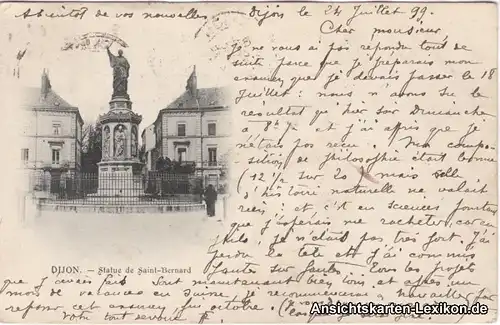 A bientôt de vos nouvelles
Dijon le 24 Juillet 99.
Cher monsieur,
Je ne vous ai pas répondu tout de
suite parce que je préparais mon
examen que je devais passer le 18
Juillet : nous n'avons su le
résultat qu'hier soir Dimanche
à 8h ½ et j'ai appris que je
n'étais pas reçu. Ma compo-
sition de Philosophie était bonne
(12 ½ sur 20) mais celle
d'histoire naturelle ne valait
rien; et c'est en sciences
que j'espérais me rattraper, car en
je n'étais pas très fort. J'ai
perdu la tête et j'ai commis
fautes sur fautes. Tous les projets
que j'avais fait sont maintenant bien loin et après un
mois de vacances en Suisse, je recommencerai à travailler
cet examen qui octobre.
Votre tout dévoué
DIJON. — Statue de Saint-Bernard
Ansichtskarten-Lexikon.de